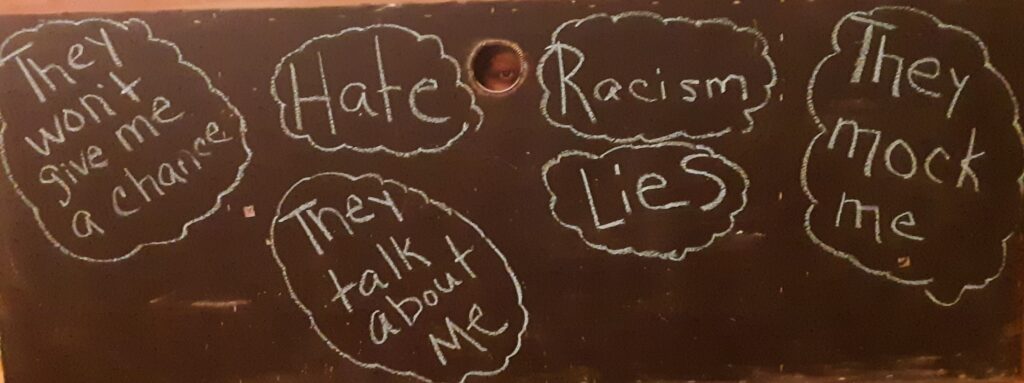 They
won't
give me
a chance
Hate
They
talk
about
Me
Racism
Lies
They
mock
me